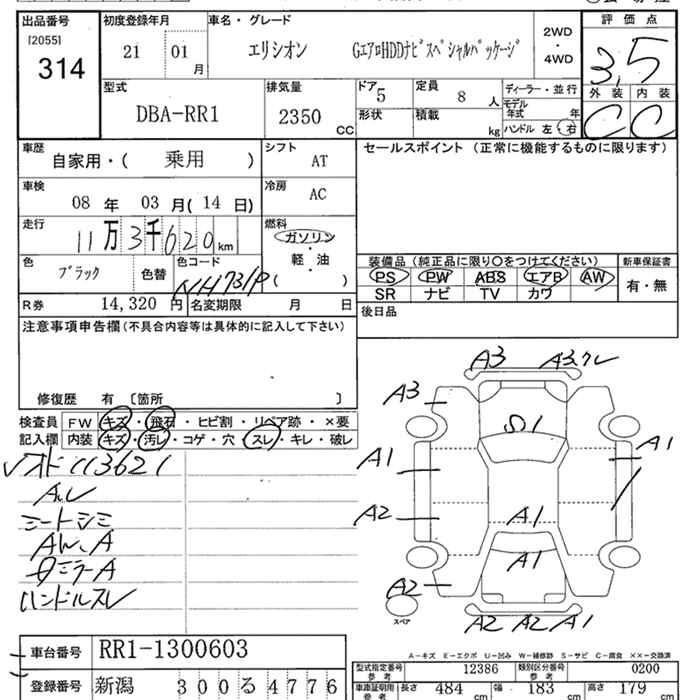 出品番号 初度登録年月 車名・グレード 評価点
[2055]
314
21 01 月
エリシオン GエアロHDDナビスペシャルパッケージ
2WD
・
4WD
3.5
外装 内装
C C
型式
DBA-RR1
排気量
2350 cc
ドア 5
定員 8 人
形状
積載 kg
ディーラー・並行
モデル年式 年
ハンドル 左・右
車歴
自家用・( 乗用 )
シフト
AT
セールスポイント (正常に機能するものに限ります)
車検
08 年 03 月 ( 14 日)
冷房
AC
走行
11万3千620km
燃料
ガソリン
・
軽・油
( )
色
ブラック
色替
色コード
NH731P
装備品 (純正品に限り〇をつけてください) 新車保証書
PS PW ABS エアB AW
SR ナビ TV カワ
有・無
R券 14,320 円 名変期限 月 日
後日品
注意事項申告欄 (不具合内容等は具体的に記入して下さい)
修復歴 有 〔箇所 〕
検査員 FW キズ・飛石・ヒビ割・リペア跡・×要
記入欄 内装 キズ・汚レ・コゲ・穴・スレ・キレ・破レ
113621
ハンドルスレ
A3 A3
A3
S1
A1 A1
A2 A1
A1
A2
A2 A2 A1
スペア
A-キズ E-エクボ U-凹み W-補修跡 S-サビ C-腐食 ××-交換済
車台番号 RR1-1300603
登録番号 新潟 300 る 4776
型式指定番号 参考 12386 類別区分番号 参考 0200
車庫証明用 参考 長さ 484 cm 幅 183 cm 高さ 179 cm